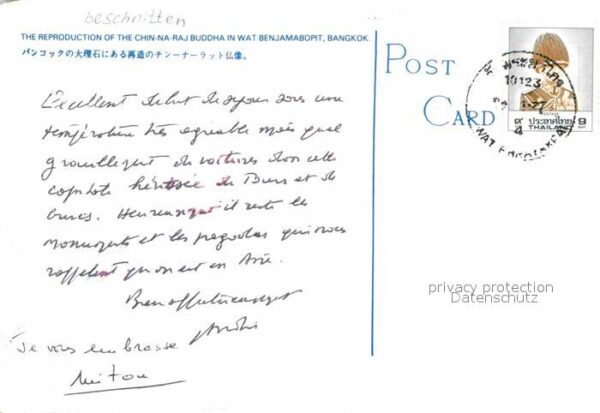 beschnitten
THE REPRODUCTION OF THE CHIN-NA-RAJ BUDDHA IN WAT BENJAMABOPIT, BANGKOK
バンコックの大理石にある再造のチンーナーラット仏像。
POST
CARD
10123
ประเทศไทย 9
THAILAND
Excellent début de séjour sous une
température très agréable mais quel
grouillement de voitures dans cette
capitale hérissée de Bus et de
. Heureusement il reste les
monuments et les pagodes qui nous
rappellent qu'on est en Asie.
Bien affectueusement
Je vous embrasse
privacy protection
Datenschutz